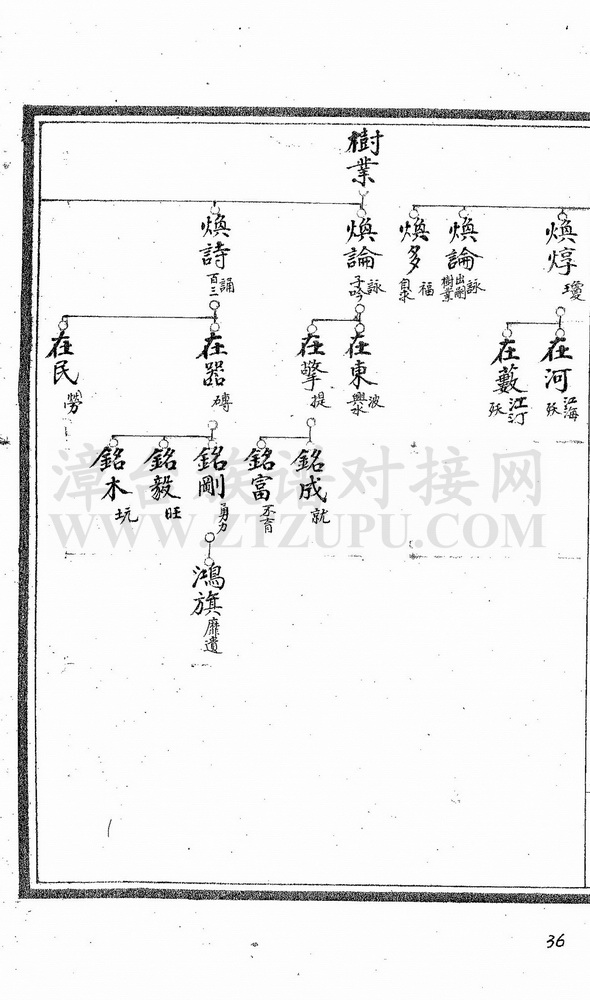 樹業
煥焞 瓊
煥論 詠 出嗣樹業
煥多 福
煥論 詠 子吟
煥詩 誦 百二
在河 江海 殀
在藪 江汀 殀
在東 波 興水
在擎 提
在器 磚
在民 勞
銘成 就
銘富 不育
銘剛 勇力
銘毅 旺
銘木 坑
鴻旗 靡遺
漳台族谱对接网
WWW.ZTZUPU.COM
36